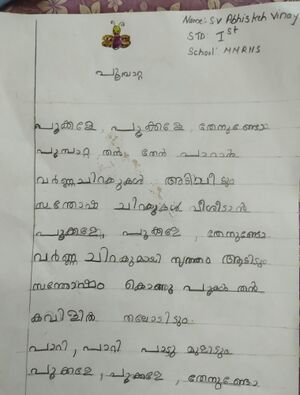 Name: S V Abhishek Vinay
STD: Ist
School: MMRHS
പൂമ്പാറ്റ
പൂക്കളേ, പൂക്കളേ, തേനുണ്ടോ
പൂമ്പാറ്റ തൻ തേൻ പാറാൻ
വർണ്ണചിറകുകൾ അടിച്ചീടും
സന്തോഷ ചിറകുകൾ വീശിടാൻ
പൂക്കളേ, പൂക്കളേ, തേനുണ്ടോ
വർണ്ണ ചിറകുമായി നൃത്തം ആടിടും
സന്തോഷം കൊണ്ടു പൂക്കൾ തൻ
കവിളിൽ തലോടിടും
പാറി, പാറി പാട്ടു മൂളിടും
പൂക്കളേ, പൂക്കളേ, തേനുണ്ടോ